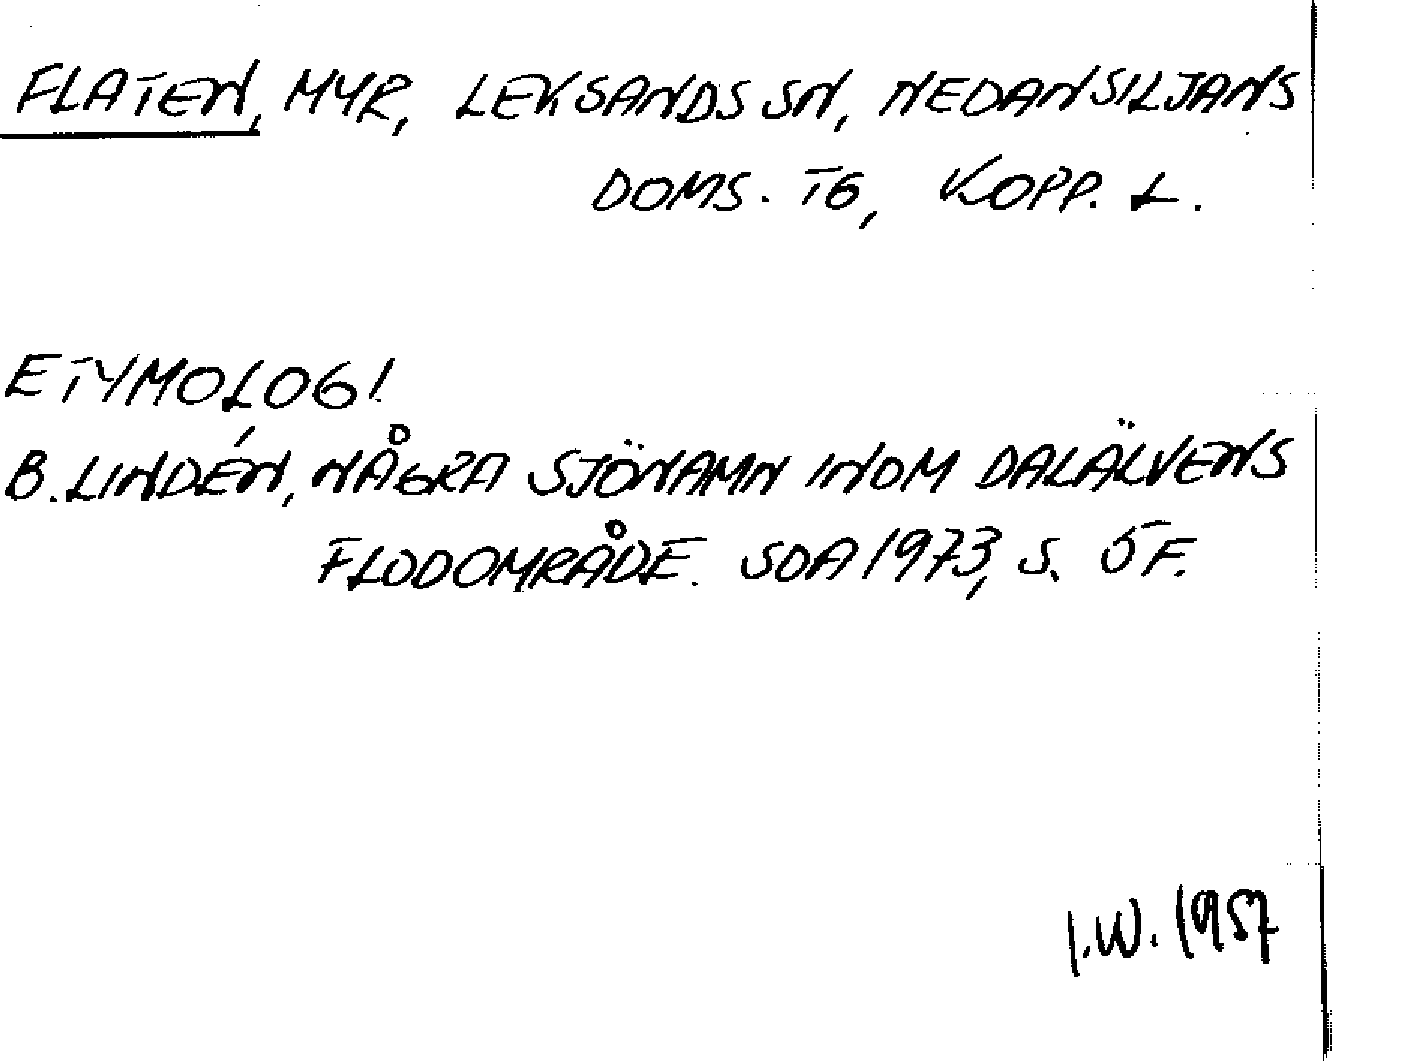 FLATEN, MYR, LEKSANDS SN, NEDANSILJANS
DOMS. TG, KOPP. L.
ETYMOLOGI
B. LINDÉN, NÅGRA SJÖNAMN INOM DALÄLVENS
FLODOMRÅDE. SOA 1973, S. 5 F.
I.W. 1957